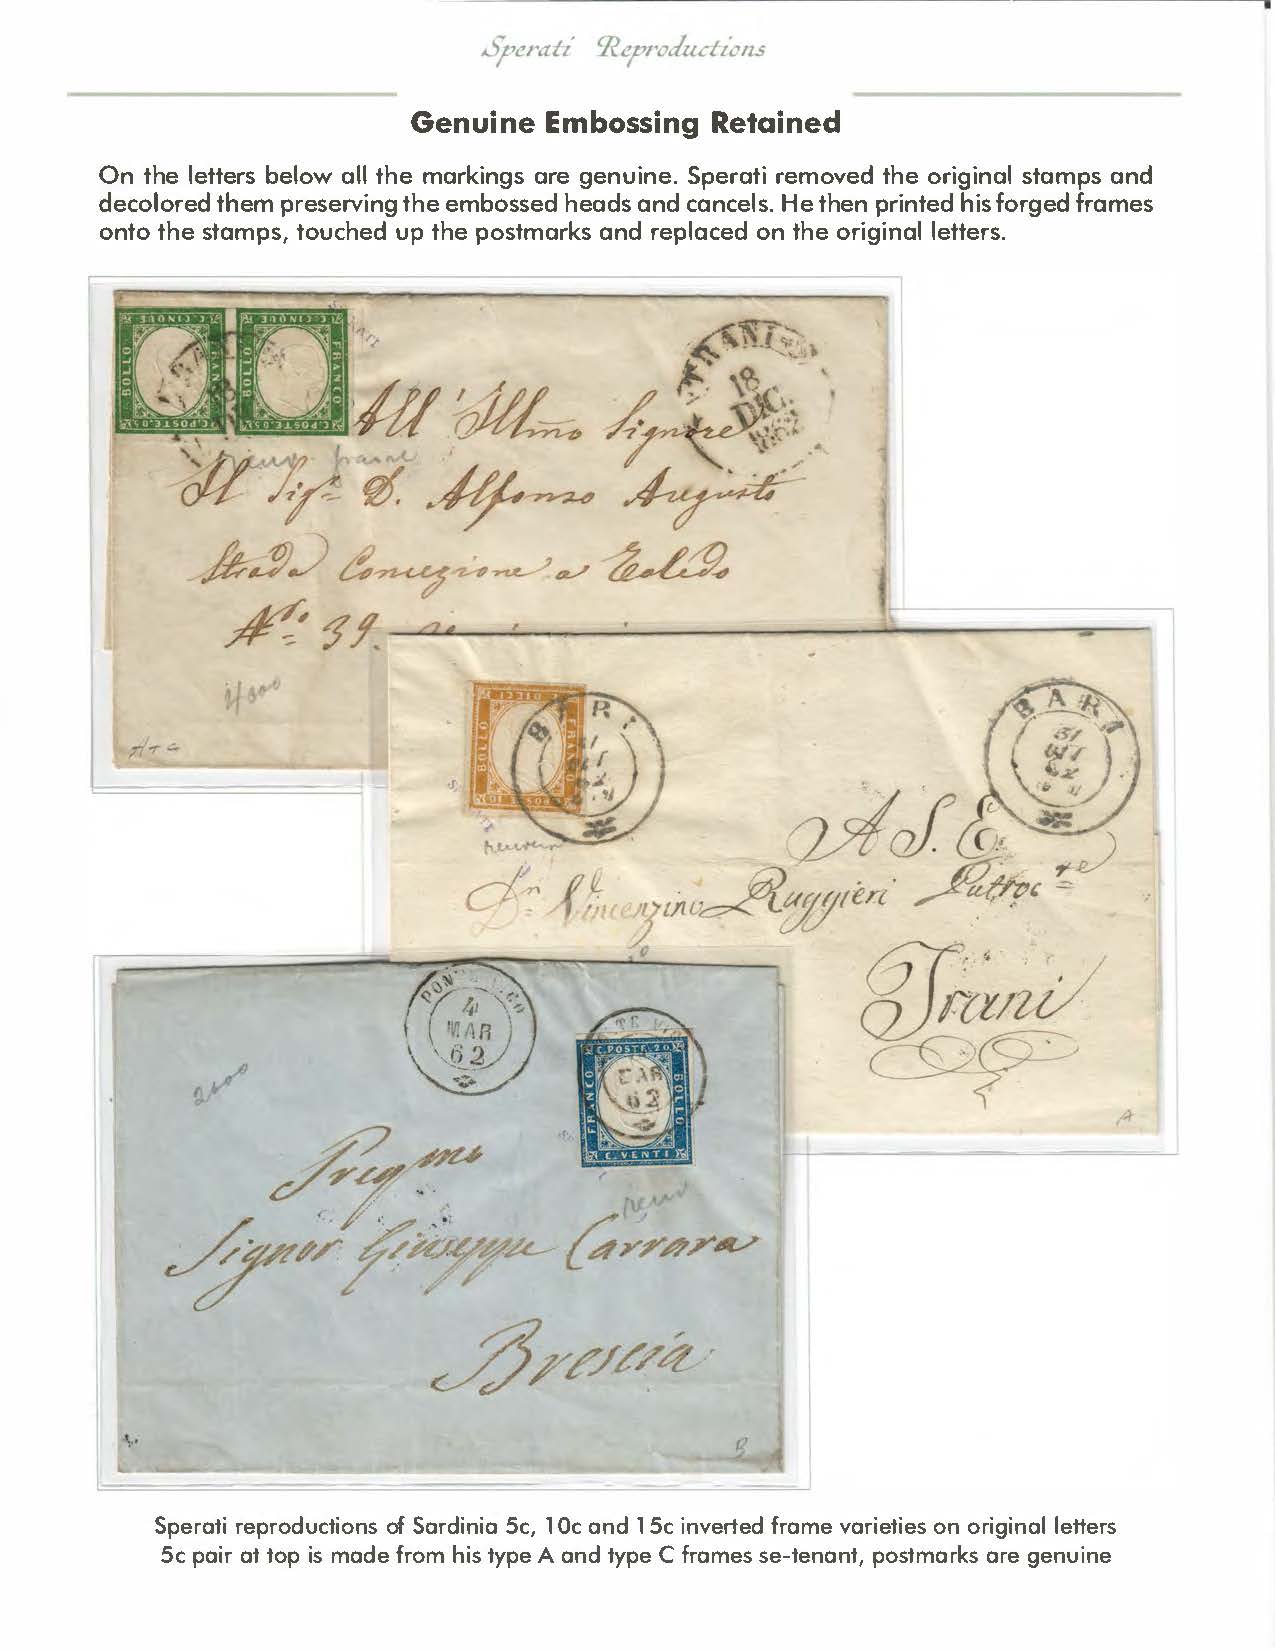 Sperati Reproductions
Genuine Embossing Retained
On the letters below all the markings are genuine. Sperati removed the original stamps and
decolored them preserving the embossed heads and cancels. He then printed his forged frames
onto the stamps, touched up the postmarks and replaced on the original letters.
C. CINQUE C. CINQUE
BOLLO FRANCO BOLLO FRANCO
C. POSTE. 05 C. POSTE. 05
SPERATI
TRANI
18
DIC.
1862
All' Illmo Signore
Il Sigr D. Alfonso Augusto
Strada Concezione a Toledo
No 39.
4000
A + C
C. DIECI
BOLLO FRANCO
C. POSTE 10
BARI
BARI
31
OTT
62
SPERATI
A S. E.
Dn Vincenzino Ruggieri Patroc re
Trani
A
PONTEVICO
4
MAR
62
C. POSTE. 20
FRANCO BOLLO
C. VENTI
MAR
62
2600
Pregmo
Signor Giuseppe Carrara
Brescia
B
Sperati reproductions of Sardinia 5c, 10c and 15c inverted frame varieties on original letters
5c pair at top is made from his type A and type C frames se-tenant, postmarks are genuine